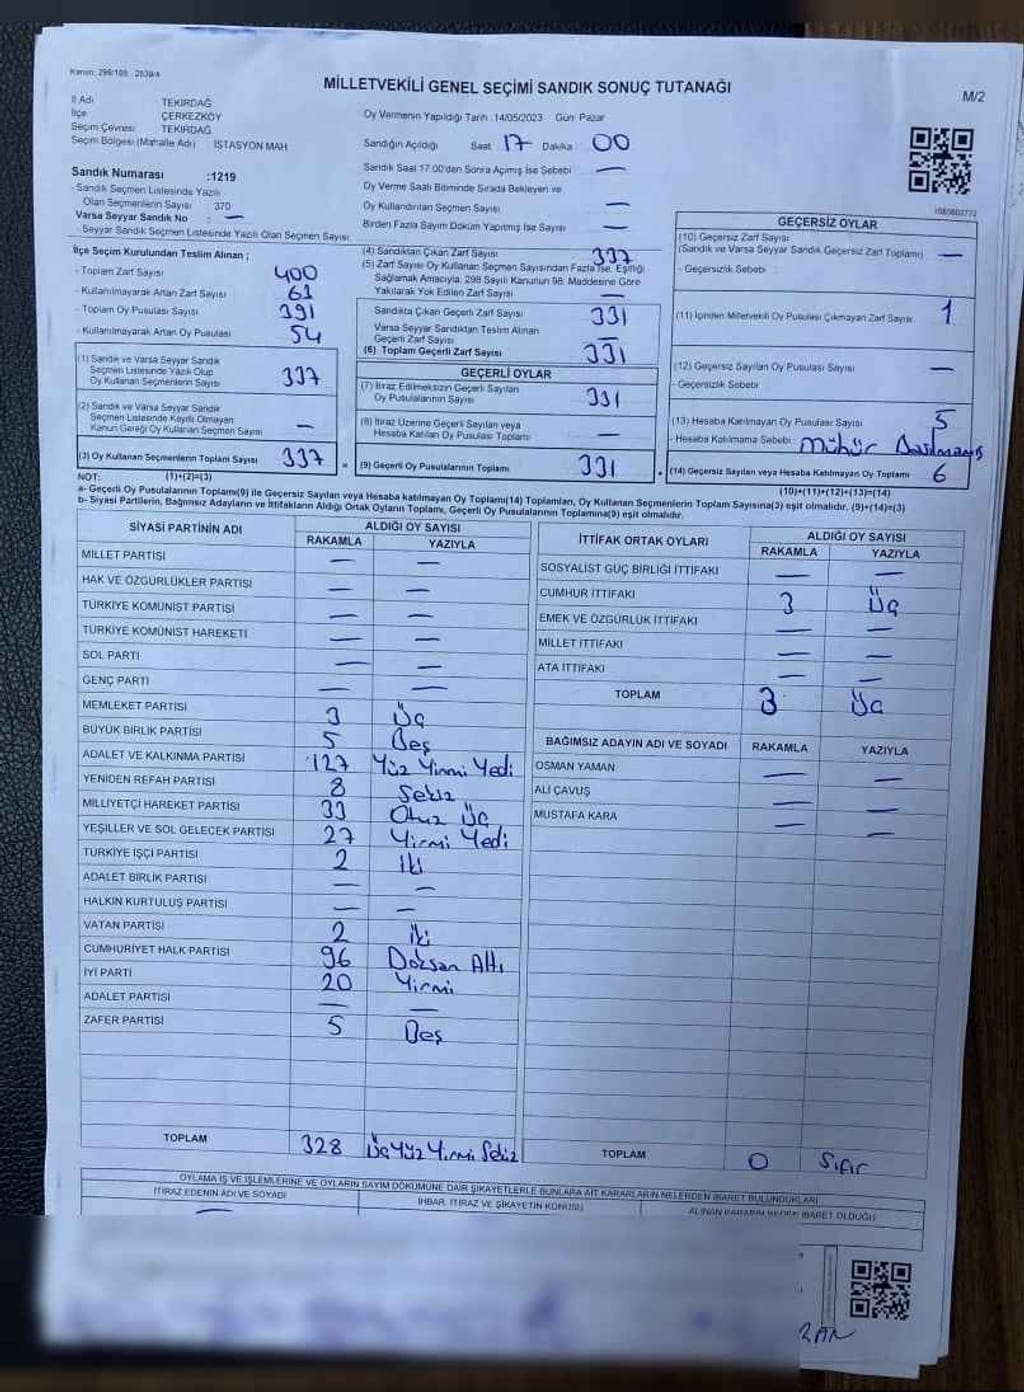 Kanun: 298/105
MİLLETVEKİLİ GENEL SEÇİMİ SANDIK SONUÇ TUTANAĞI
M/2
İl Adı : TEKİRDAĞ
İlçe : ÇERKEZKÖY
Seçim Çevresi : TEKİRDAĞ
Seçim Bölgesi (Mahalle Adı) : İSTASYON MAH
Oy Vermenin Yapıldığı Tarih :14/05/2023 Gün: Pazar
Sandığın Açıldığı Saat 17 Dakika: 00
Sandık Saat 17.00'den Sonra Açımış İse Sebebi —
Oy Verme Saati Bitiminde Sırada Bekleyen ve
Oy Kullandırılan Seçmen Sayısı —
Birden Fazla Sayım Döküm Yapılmış İse Sayısı —
Sandık Numarası :1219
- Sandık Seçmen Listesinde Yazılı
Olan Seçmenlerin Sayısı 370
Varsa Seyyar Sandık No : —
- Seyyar Sandık Seçmen Listesinde Yazılı Olan Seçmen Sayısı
1085603772
İlçe Seçim Kurulundan Teslim Alınan ;
- Toplam Zarf Sayısı 400
- Kullanılmayarak Artan Zarf Sayısı 61
- Toplam Oy Pusulası Sayısı 391
- Kullanılmayarak Artan Oy Pusulası 54
(1) Sandık ve Varsa Seyyar Sandık
Seçmen Listesinde Yazılı Olup
Oy Kullanan Seçmenlerin Sayısı 337
(2) Sandık ve Varsa Seyyar Sandık
Seçmen Listesinde Kayıtlı Olmayan
Kanun Gereği Oy Kullanan Seçmen Sayısı —
(3) Oy Kullanan Seçmenlerin Toplam Sayısı 337
(1)+(2)=(3)
(4) Sandıktan Çıkan Zarf Sayısı 337
(5) Zarf Sayısı Oy Kullanan Seçmen Sayısından Fazla İse, Eşitliği
Sağlamak Amacıyla; 298 Sayılı Kanunun 98. Maddesine Göre
Yakılarak Yok Edilen Zarf Sayısı —
Sandıkta Çıkan Geçerli Zarf Sayısı 331
Varsa Seyyar Sandıktan Teslim Alınan
Geçerli Zarf Sayısı —
(6) Toplam Geçerli Zarf Sayısı 331
GEÇERLİ OYLAR
(7) İtiraz Edilmeksizin Geçerli Sayılan
Oy Pusulalarının Sayısı 331
(8) İtiraz Üzerine Geçerli Sayılan veya
Hesaba Katılan Oy Pusulası Toplamı —
(9) Geçerli Oy Pusulalarının Toplamı 331
GEÇERSİZ OYLAR
(10) Geçersiz Zarf Sayısı
(Sandık ve Varsa Seyyar Sandık Geçersiz Zarf Toplamı) —
- Geçersizlik Sebebi :
(11) İçinden Milletvekili Oy Pusulası Çıkmayan Zarf Sayısı 1
(12) Geçersiz Sayılan Oy Pusulası Sayısı —
- Geçersizlik Sebebi
(13) Hesaba Katılmayan Oy Pusulası Sayısı 5
- Hesaba Katılmama Sebebi : Mühür Basılmamış
(14) Geçersiz Sayılan veya Hesaba Katılmayan Oy Toplamı 6
(10)+(11)+(12)+(13)=(14)
NOT:
a- Geçerli Oy Pusulalarının Toplamı(9) ile Geçersiz Sayılan veya Hesaba katılmayan Oy Toplamı(14) Toplamları, Oy Kullanan Seçmenlerin Toplam Sayısına(3) eşit olmalıdır. (9)+(14)=(3)
b- Siyasi Partilerin, Bağımsız Adayların ve İttifakların Aldığı Ortak Oyların Toplamı, Geçerli Oy Pusulalarının Toplamına(9) eşit olmalıdır.
SİYASİ PARTİNİN ADI ALDIĞI OY SAYISI
RAKAMLA YAZIYLA
MİLLET PARTİSİ — —
HAK VE ÖZGÜRLÜKLER PARTİSİ — —
TÜRKİYE KOMÜNİST PARTİSİ — —
TÜRKİYE KOMÜNİST HAREKETİ — —
SOL PARTİ — —
GENÇ PARTİ — —
MEMLEKET PARTİSİ 3 Üç
BÜYÜK BİRLİK PARTİSİ 5 Beş
ADALET VE KALKINMA PARTİSİ 127 Yüz Yirmi Yedi
YENİDEN REFAH PARTİSİ 8 Sekiz
MİLLİYETÇİ HAREKET PARTİSİ 33 Otuz Üç
YEŞİLLER VE SOL GELECEK PARTİSİ 27 Yirmi Yedi
TÜRKİYE İŞÇİ PARTİSİ 2 İki
ADALET BİRLİK PARTİSİ — —
HALKIN KURTULUŞ PARTİSİ — —
VATAN PARTİSİ 2 İki
CUMHURİYET HALK PARTİSİ 96 Doksan Altı
İYİ PARTİ 20 Yirmi
ADALET PARTİSİ — —
ZAFER PARTİSİ 5 Beş
TOPLAM 328 Üç Yüz Yirmi Sekiz
İTTİFAK ORTAK OYLARI ALDIĞI OY SAYISI
RAKAMLA YAZIYLA
SOSYALİST GÜÇ BİRLİĞİ İTTİFAKI — —
CUMHUR İTTİFAKI 3 Üç
EMEK VE ÖZGÜRLÜK İTTİFAKI — —
MİLLET İTTİFAKI — —
ATA İTTİFAKI — —
TOPLAM 3 Üç
BAĞIMSIZ ADAYIN ADI VE SOYADI RAKAMLA YAZIYLA
OSMAN YAMAN — —
ALİ ÇAVUŞ — —
MUSTAFA KARA — —
TOPLAM 0 Sıfır
OYLAMA İŞ VE İŞLEMLERİNE VE OYLARIN SAYIM DÖKÜMÜNE DAİR ŞİKAYETLERLE BUNLARA AİT KARARLARIN NELERDEN İBARET BULUNDUKLARI
İTİRAZ EDENİN ADI VE SOYADI İHBAR, İTİRAZ VE ŞİKAYETİN KONUSU ALINAN KARARIN NEDEN İBARET OLDUĞU
—